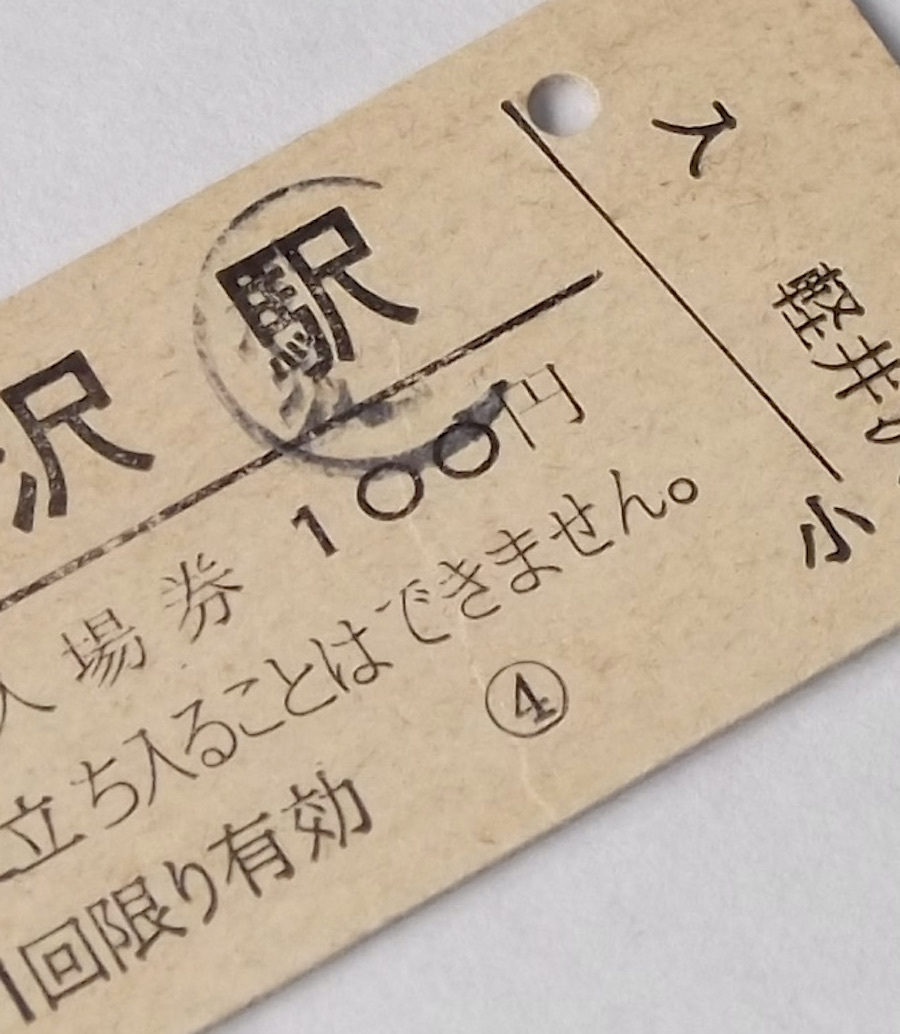 沢駅
入場券 100円
立ち入ることはできません。
1回限り有効 ④
入
軽井
小